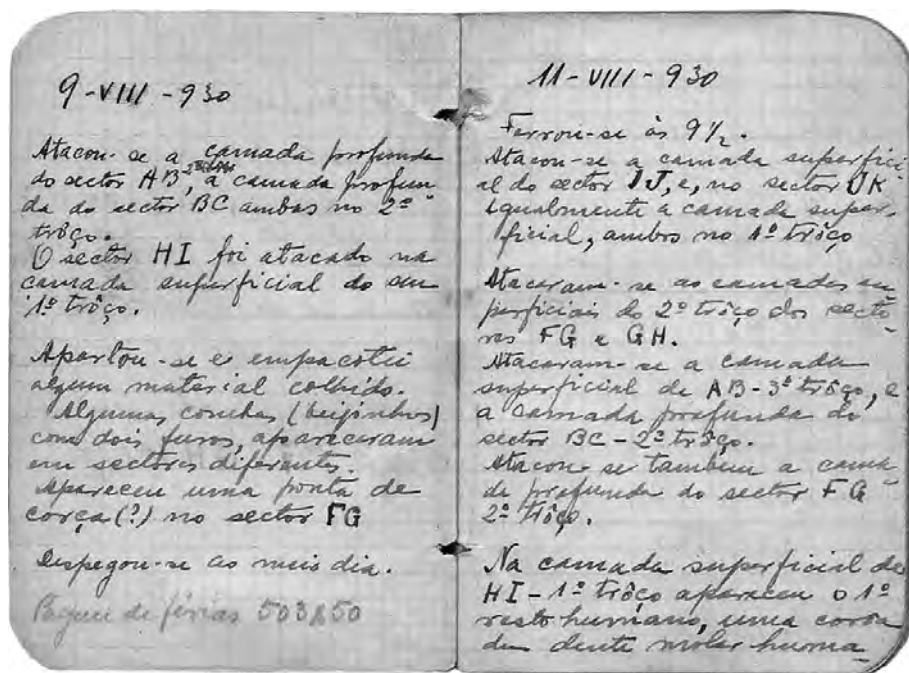 9-VIII-930
Atacou-se a camada profunda
do sector AB, a camada profun
da do sector BC ambas no 2º
trôço.
O sector HI foi atacado na
camada superficial do seu
1º trôço.
Apartou-se e empacotei
algum material colhido.
Algumas conchas (beijinhos)
com dois furos, apareceram
em sectores diferentes.
Apareceu uma ponta de
corça (?) no sector FG
Despegou-se ao meio dia.
Paguei de férias 503$50
11-VIII-930
Ferrou-se ás 9½.
Atacou-se a camada superfici
al do sector IJ, e, no sector JK
igualmente a camada super-
ficial, ambos no 1º trôço
Atacaram-se as camadas su
perficiais do 2º trôço dos secto-
res FG e GH.
Atacaram-se a camada
superficial de AB-3º trôço, e
a camada profunda do
sector BC-2º trôço.
Atacou-se tambem a cama
da profunda do sector FG
2º trôço.
Na camada superficial de
HI-1º trôço apareceu o 1º
resto humano, uma corôa
dum dente molar huma